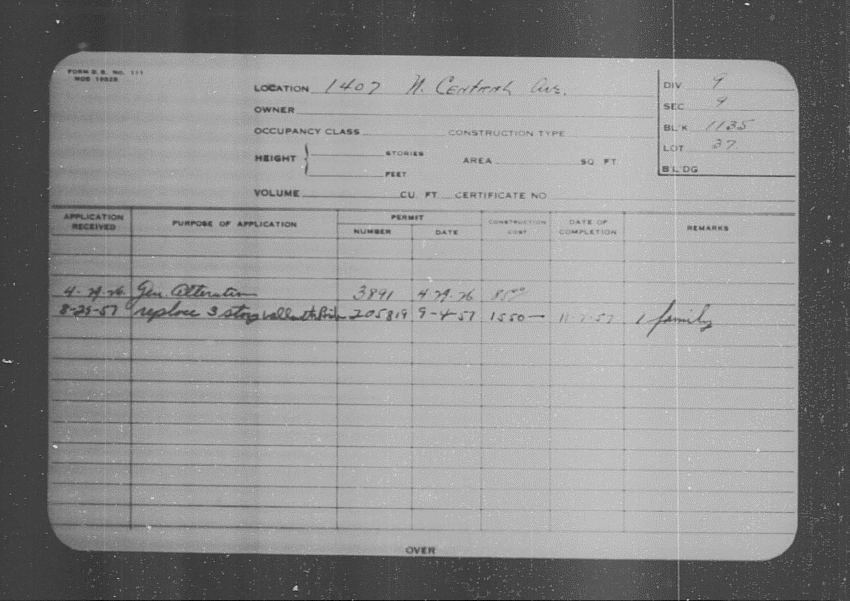 FORM D. B. No. 111
LOCATION 1407 N. Central Ave.
DIV 9
OWNER
SEC 9
OCCUPANCY CLASS CONSTRUCTION TYPE
BL'K 1135
HEIGHT STORIES AREA SQ FT
LOT 37
FEET
B'L'DG
VOLUME CU FT CERTIFICATE NO
APPLICATION RECEIVED PURPOSE OF APPLICATION PERMIT NUMBER DATE CONSTRUCTION COST DATE OF COMPLETION REMARKS
4-29-26 Gen Alteration 3891 4 29-26
8-29-57 replace 3 story wall with 205819 9-4-57 1550— 11-7-57 1 family
OVER